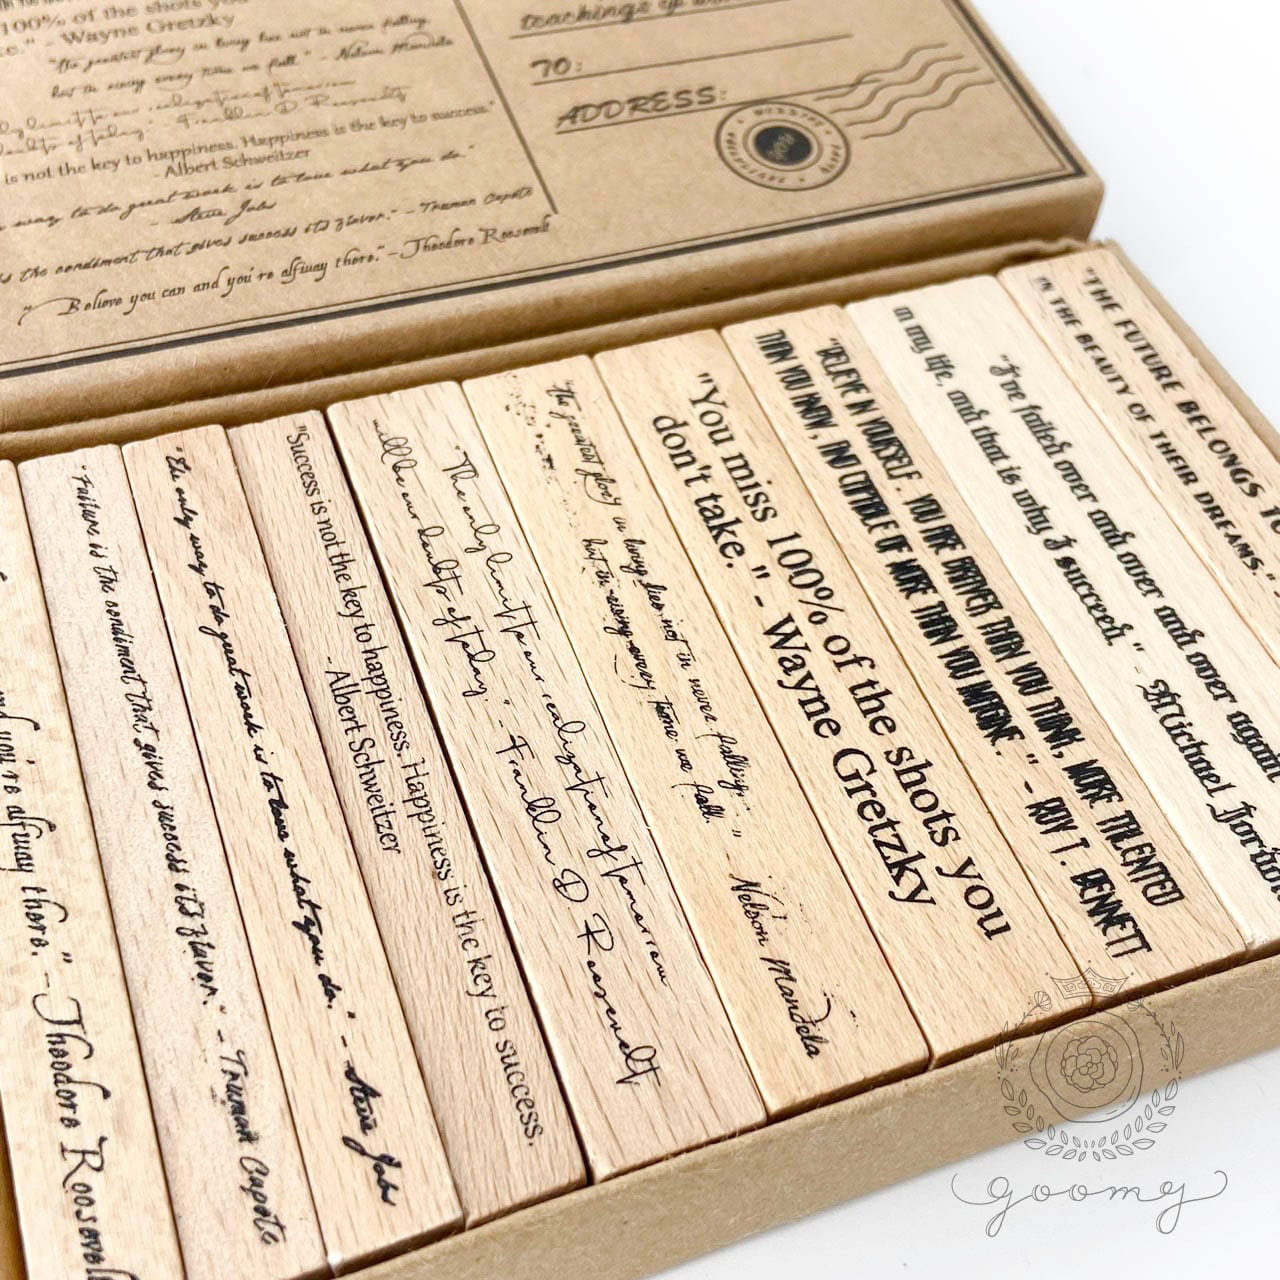 100% of the shots you
" - Wayne Gretzky
"the greatest glory in living lies not in never falling,
but in rising every time we fall." - Nelson Mandela
of today." - Franklin D Roosevelt
is not the key to happiness. Happiness is the key to success."
- Albert Schweitzer
way to do great work is to love what you do."
- Steve Jobs
is the condiment that gives success its flavor." - Truman Capote
"Believe you can and you're alfiway there." - Theodore Roosevelt
teachings of
TO:
ADDRESS:
you're alfiway there." - Theodore Roosevelt
"Failure is the condiment that gives success its flavor." - Truman Capote
"The only way to do great work is to love what you do." - Steve Jobs
"Success is not the key to happiness. Happiness is the key to success.
- Albert Schweitzer
"The only limit to our realization of tomorrow
will be our doubts of today." - Franklin D Roosevelt
"the greatest glory in living lies not in never falling,
but in rising every time we fall." - Nelson Mandela
"You miss 100% of the shots you
don't take." - Wayne Gretzky
"BELIEVE IN YOURSELF. YOU ARE BRAVER THAN YOU THINK, MORE TALENTED
THAN YOU KNOW, AND CAPABLE OF MORE THAN YOU IMAGINE." - ROY T. BENNETT
"I've failed over and over and over again
in my life, and that is why I succeed." - Michael Jordan
"THE FUTURE BELONGS TO
IN THE BEAUTY OF THEIR DREAMS."
goomy